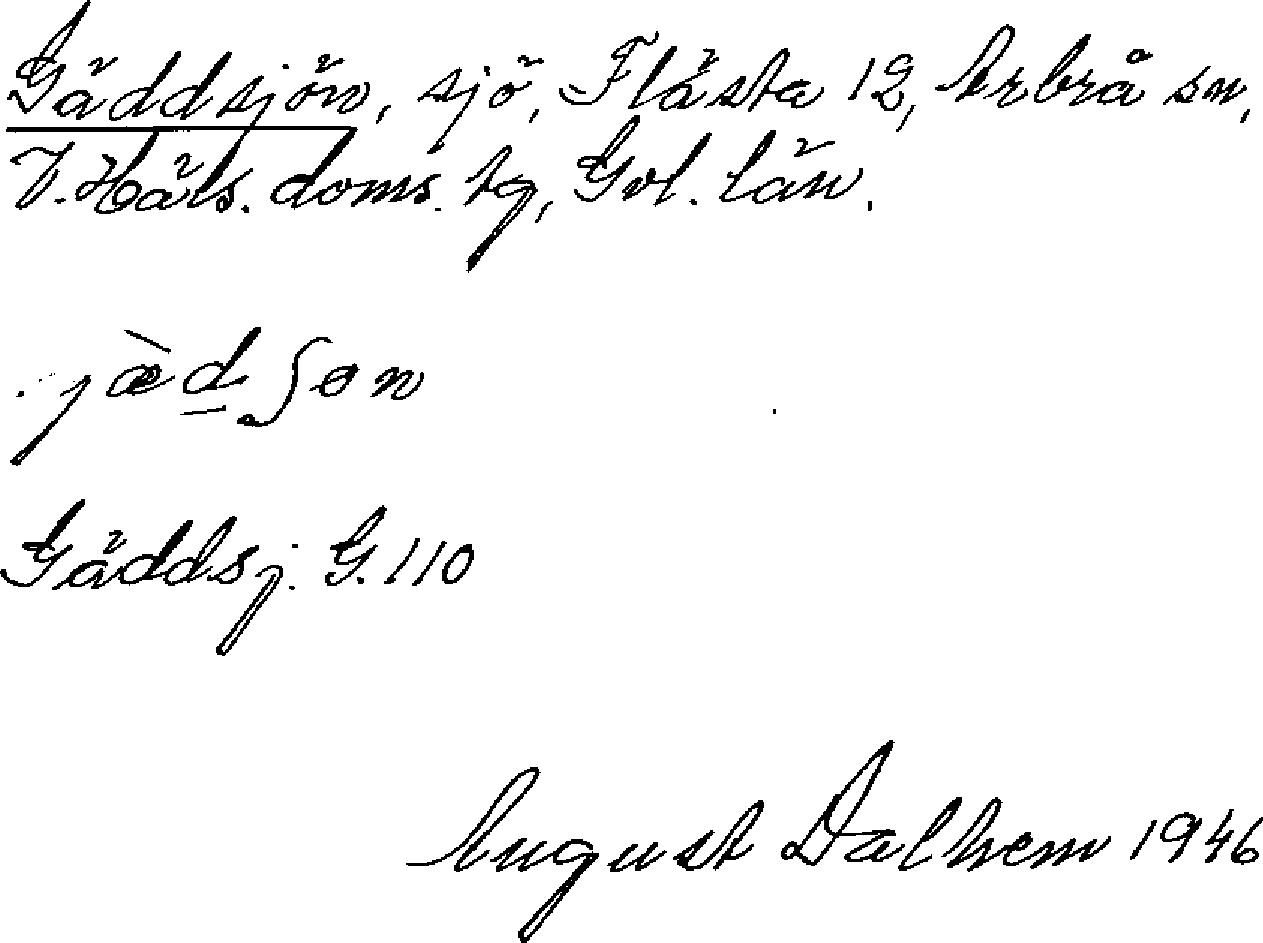 Gäddsjön, sjö, Flästa 12, Arbrå sn,
V. Häls. doms. tg, Gvl. län.
jæ̀d̲ʃøn
Gäddsj. G. 110
August Dalhem 1946